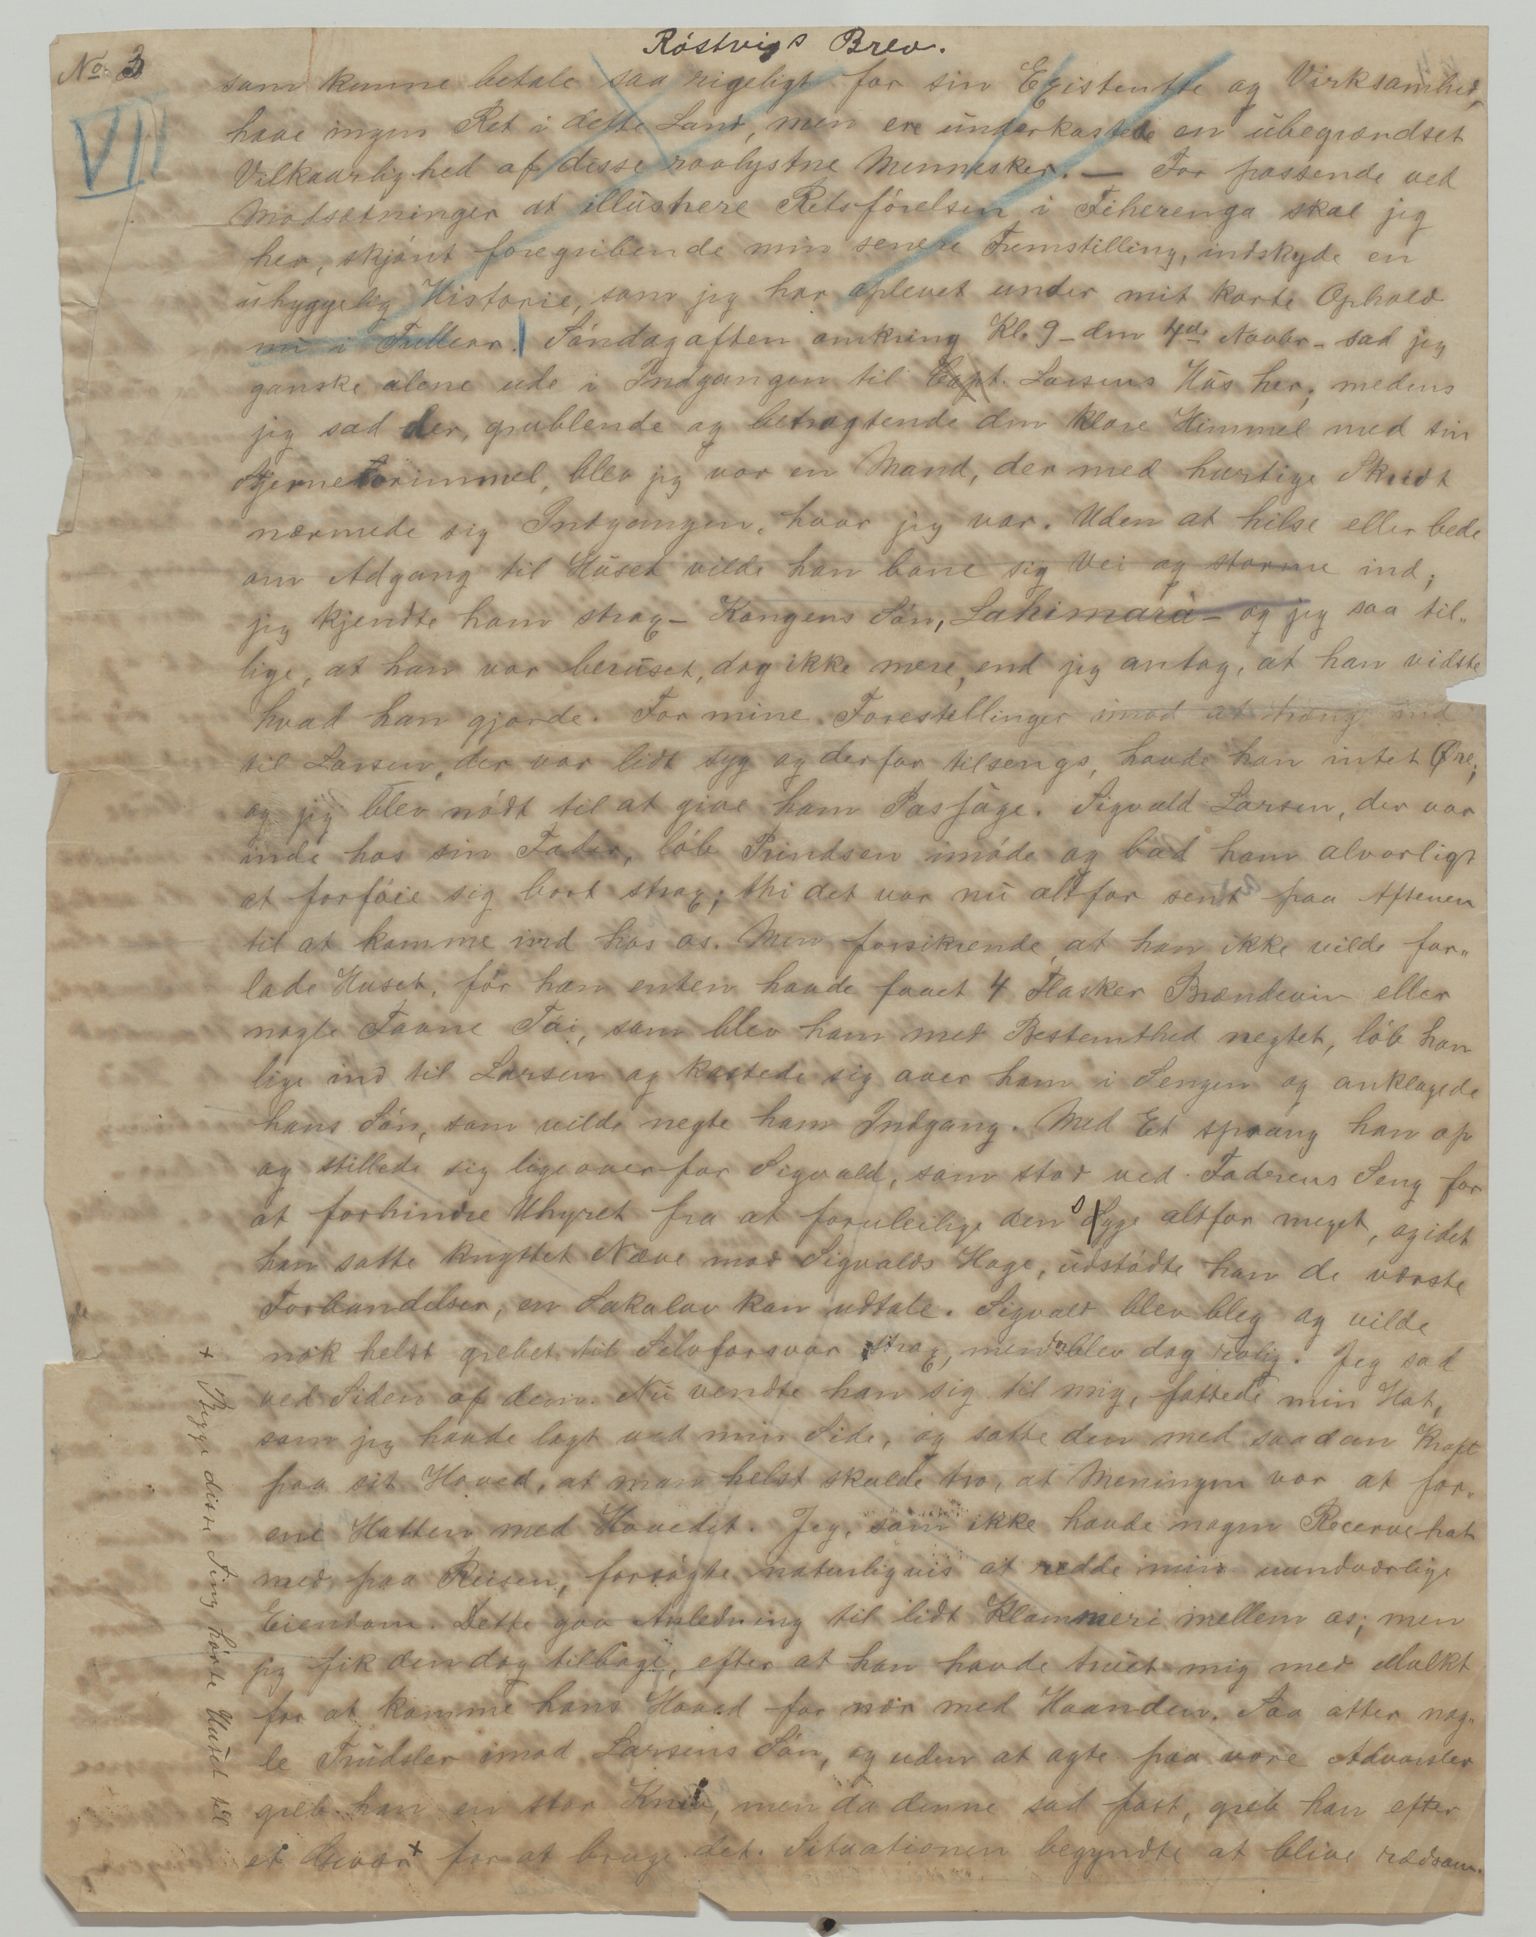 No. 3
Röstvigs Brev.
VII
som kunne betale saa rigeligt for sin Existentse og Virksomhed,
have ingen Ret i dette Land, men ere underkastede en ubegrændset
Vilkaarlighed af disse rovlystne Mennesker. — For passende ved
Modsætninger at illustrere Retsförelsen i Fiherenga skal jeg
her, skjönt foregribende min senere Fremstilling, indskyde en
uhyggelig Historie, som jeg har oplevet under mit korte Ophold
nu i Tullear. | Söndagaften omkring Kl. 9 – den 4de Novbr – sad jeg
ganske alene ude i Indgangen til Capt. Larsens Hus her; medens
jeg sad der, grublende og betragtende den klare Himmel med sin
Stjernevrimmel, blev jeg var en Mand, der med hurtige Skridt
nærmede sig Indgangen, hvor jeg var. Uden at hilse eller bede
om Adgang til Huset vilde han bane sig Vei og storme ind;
jeg kjendte ham strax – Kongens Sön, Lahimara – og jeg saa til-
lige, at han var beruset, dog ikke mere, end jeg antog, at han vidste
hvad han gjorde. For mine Forestellinger imod at trænge ind
til Larsen, der var lidt syg og derfor tilsengs, havde han intet Öre;
og jeg blev nödt til at give ham Passage. Sigvald Larsen, der var
inde hos sin Fader, löb Prindsen imöde og bad ham alvorligt
at forföie sig bort strax; thi det var nu altfor sent paa Aftenen
til at komme ind hos os. Men forsikrende, at han ikke vilde for-
lade Huset, för han enten havde faaet 4 Flasker Brændevin eller
nogle Favne Töi, som blev ham med Bestemthed negtet, löb han
lige ind til Larsen og kastede sig over ham i Sengen og anklagede
hans Sön, som vilde negte ham Indgang. Med Et sprang han op
og stillede sig ligeoverfor Sigvald, som stod ved Faderens Seng for
at forhindre Uhyret fra at foruleilige den Syge altfor meget, og idet
han satte knyttet Næve mod Sigvalds Hage, udstödte han de værste
Forbandelser, en Sakalav kan udtale. Sigvald blev bleg og vilde
nok helst grebet til Selvforsvar strax, men blev dog rolig. Jeg sad
ved Siden af dem. Nu vendte han sig til mig, fattede min Hat,
som jeg havde lagt ved min Side, og satte den med saadan Kraft
paa sit Hoved, at man helst skulde tro, at Meningen var at for-
ene Hatten med Hovedet. Jeg, som ikke havde nogen Reservehat
med paa Reisen, forsögte naturligvis at redde min uundværlige
Eiendom. Dette gav Anledning til lidt Klammeri mellem os; men
jeg fik den dog tilbage, efter at han havde truet mig med Mulkt
for at komme hans Hoved for nær med Haanden. Saa atter nog-
le Trudsler imod Larsens Sön, og uden at agte paa vore Advarsler
greb han en stor Kniv, men da denne sad fast, greb han efter
et Gevær x for at bruge det. Situationen begyndte at blive rædsom.
x Begge disse Ting hörte Huset til